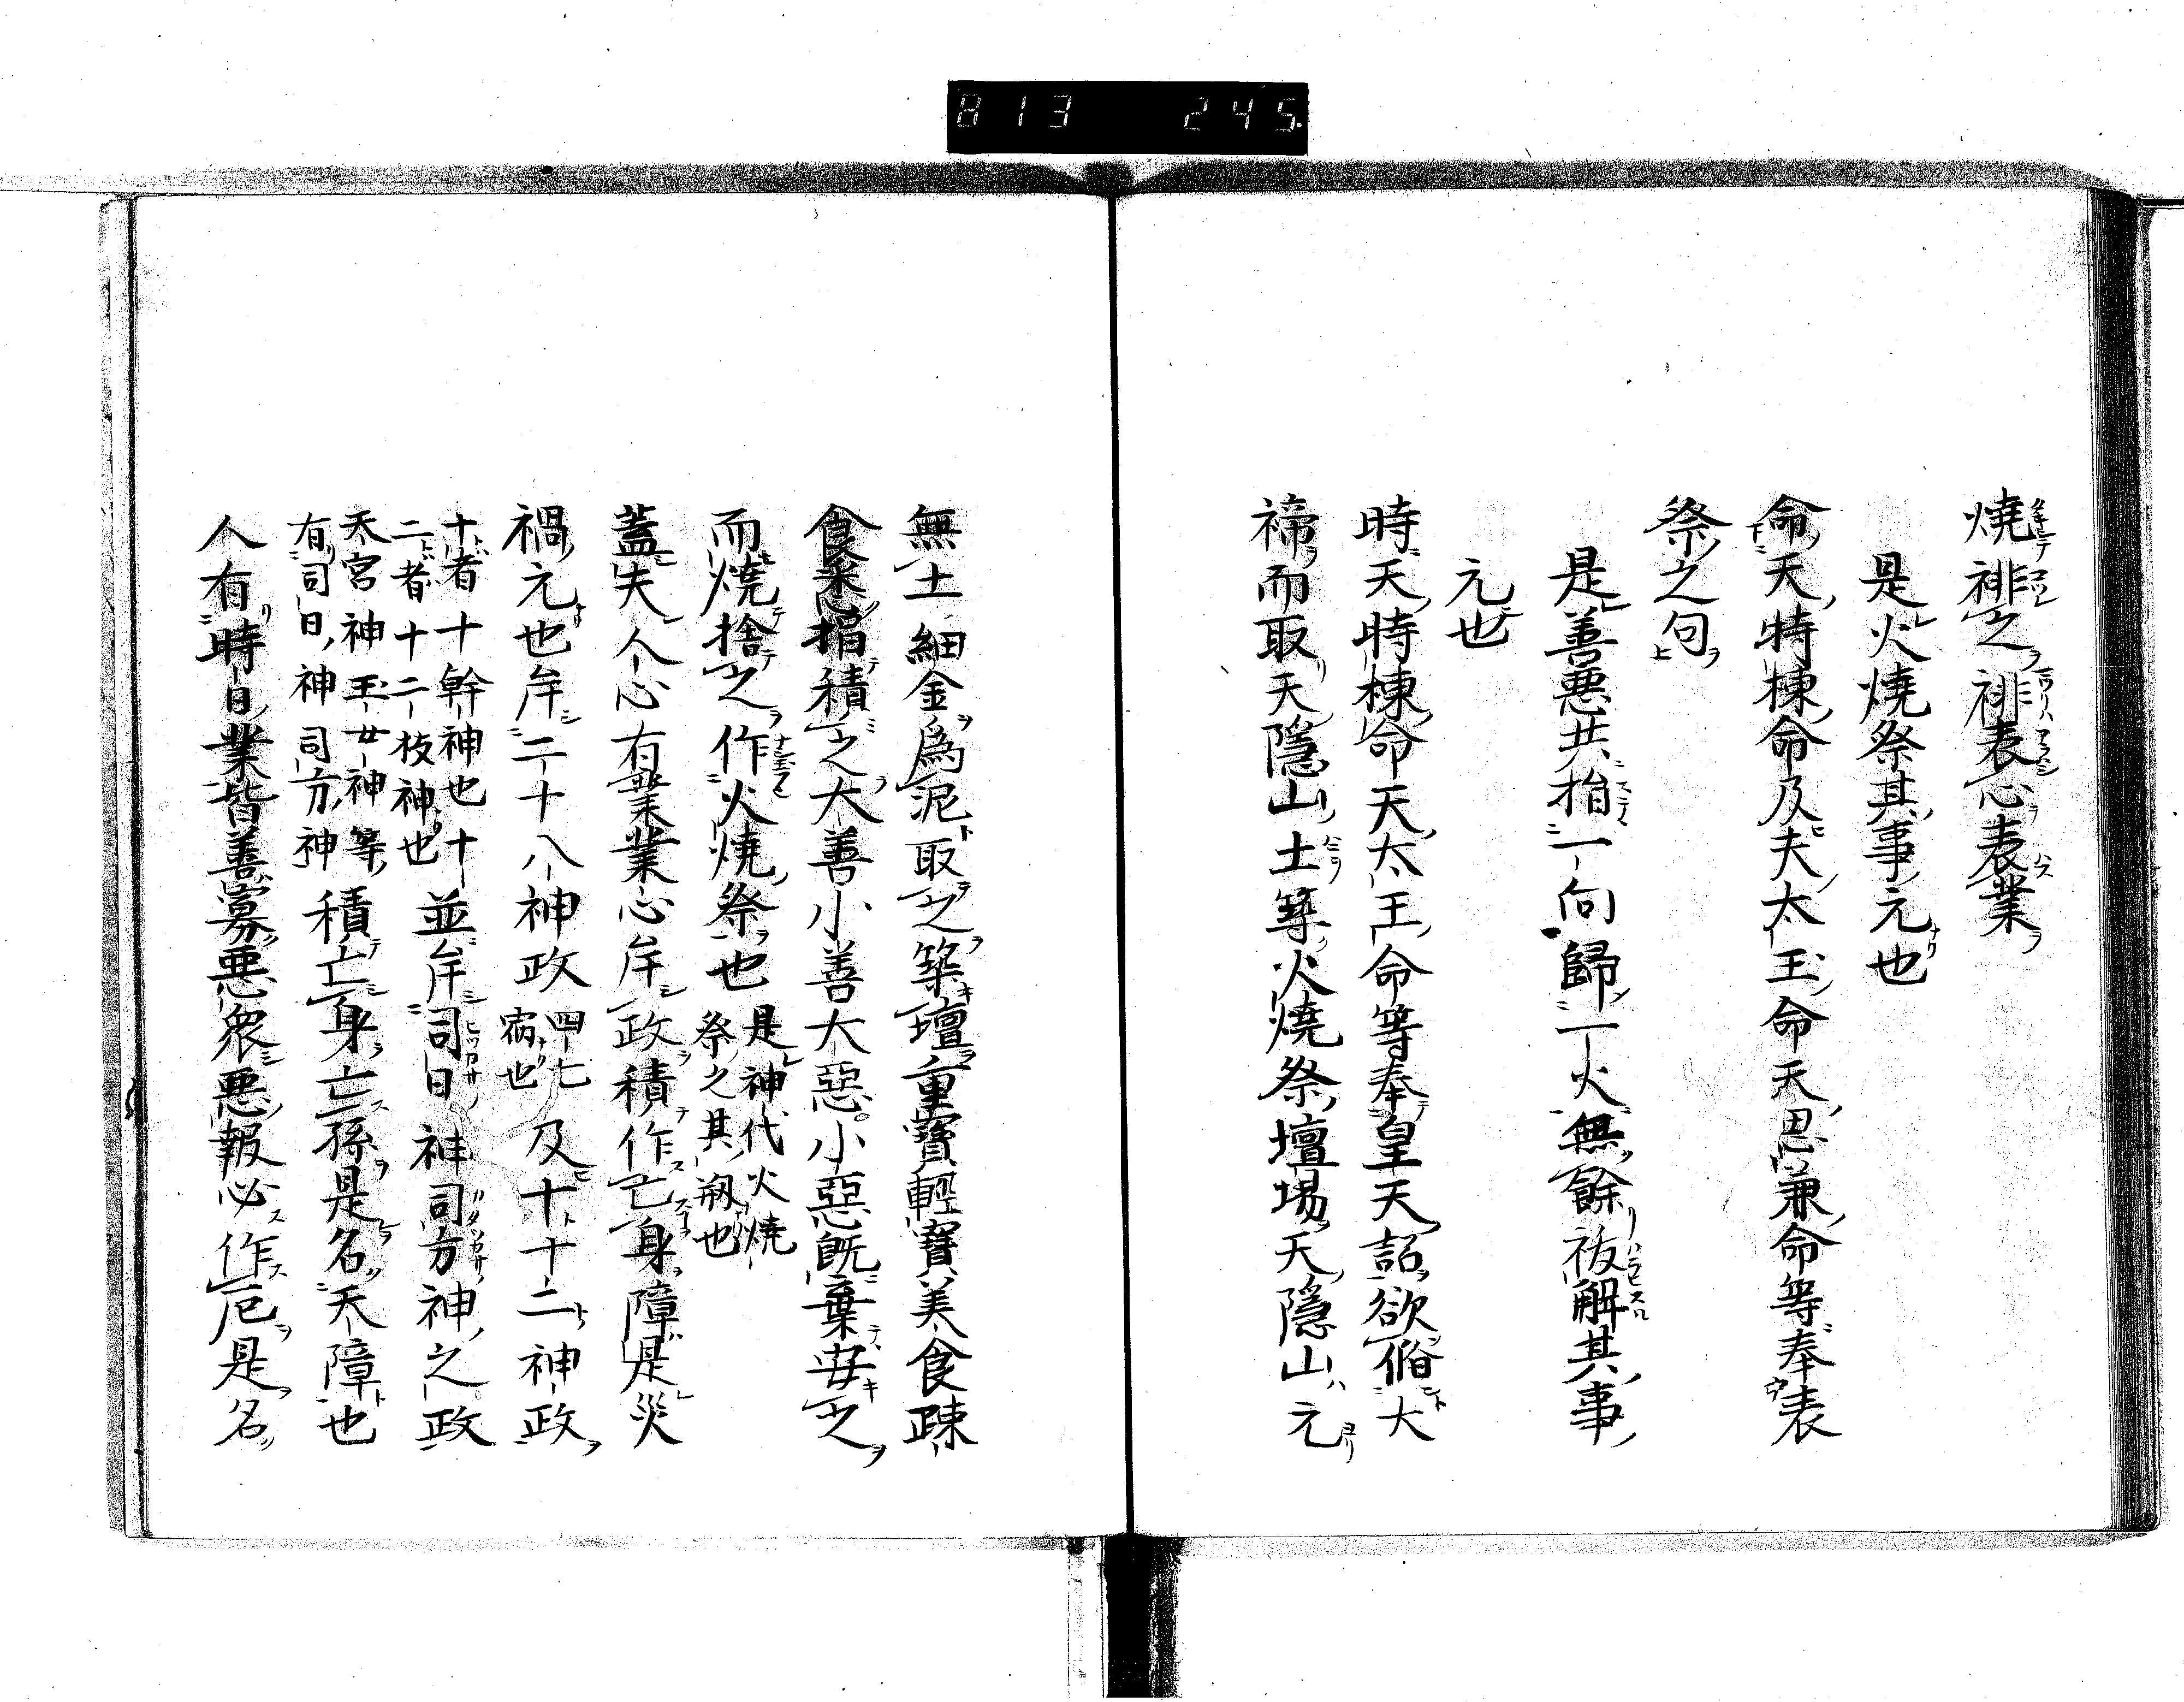 813 245
燒祓之祓表心表業
是火燒祭其事元也
命天特棟命及天太玉命天思兼命等奉表
祭之句
是善惡共捨一向歸一火無餘祓解其事
元也
時天時棟命天太玉命等奉皇天詔欲脩大
褅而取天隱山土築火燒祭壇場天隱山元
無土細金爲泥取之築壇重寶輕寶美食疎
食悉捐積之大善小善大惡小惡旣棄安之
而燒捨之作火燒祭也
是神代火燒
祭之其朔也
蓋夫人心有業業心牟政積作亡身障是災
禍元也牟二十八神政
四七
宿也
及十十二神政
十者十幹神也十
二者十二枝神也
並牟司日神司方神之政
天宮神玉女神等
有司日神司方神
積亡身亡孫是名天障也
人有時日業皆善寡惡衆惡報必作厄是名